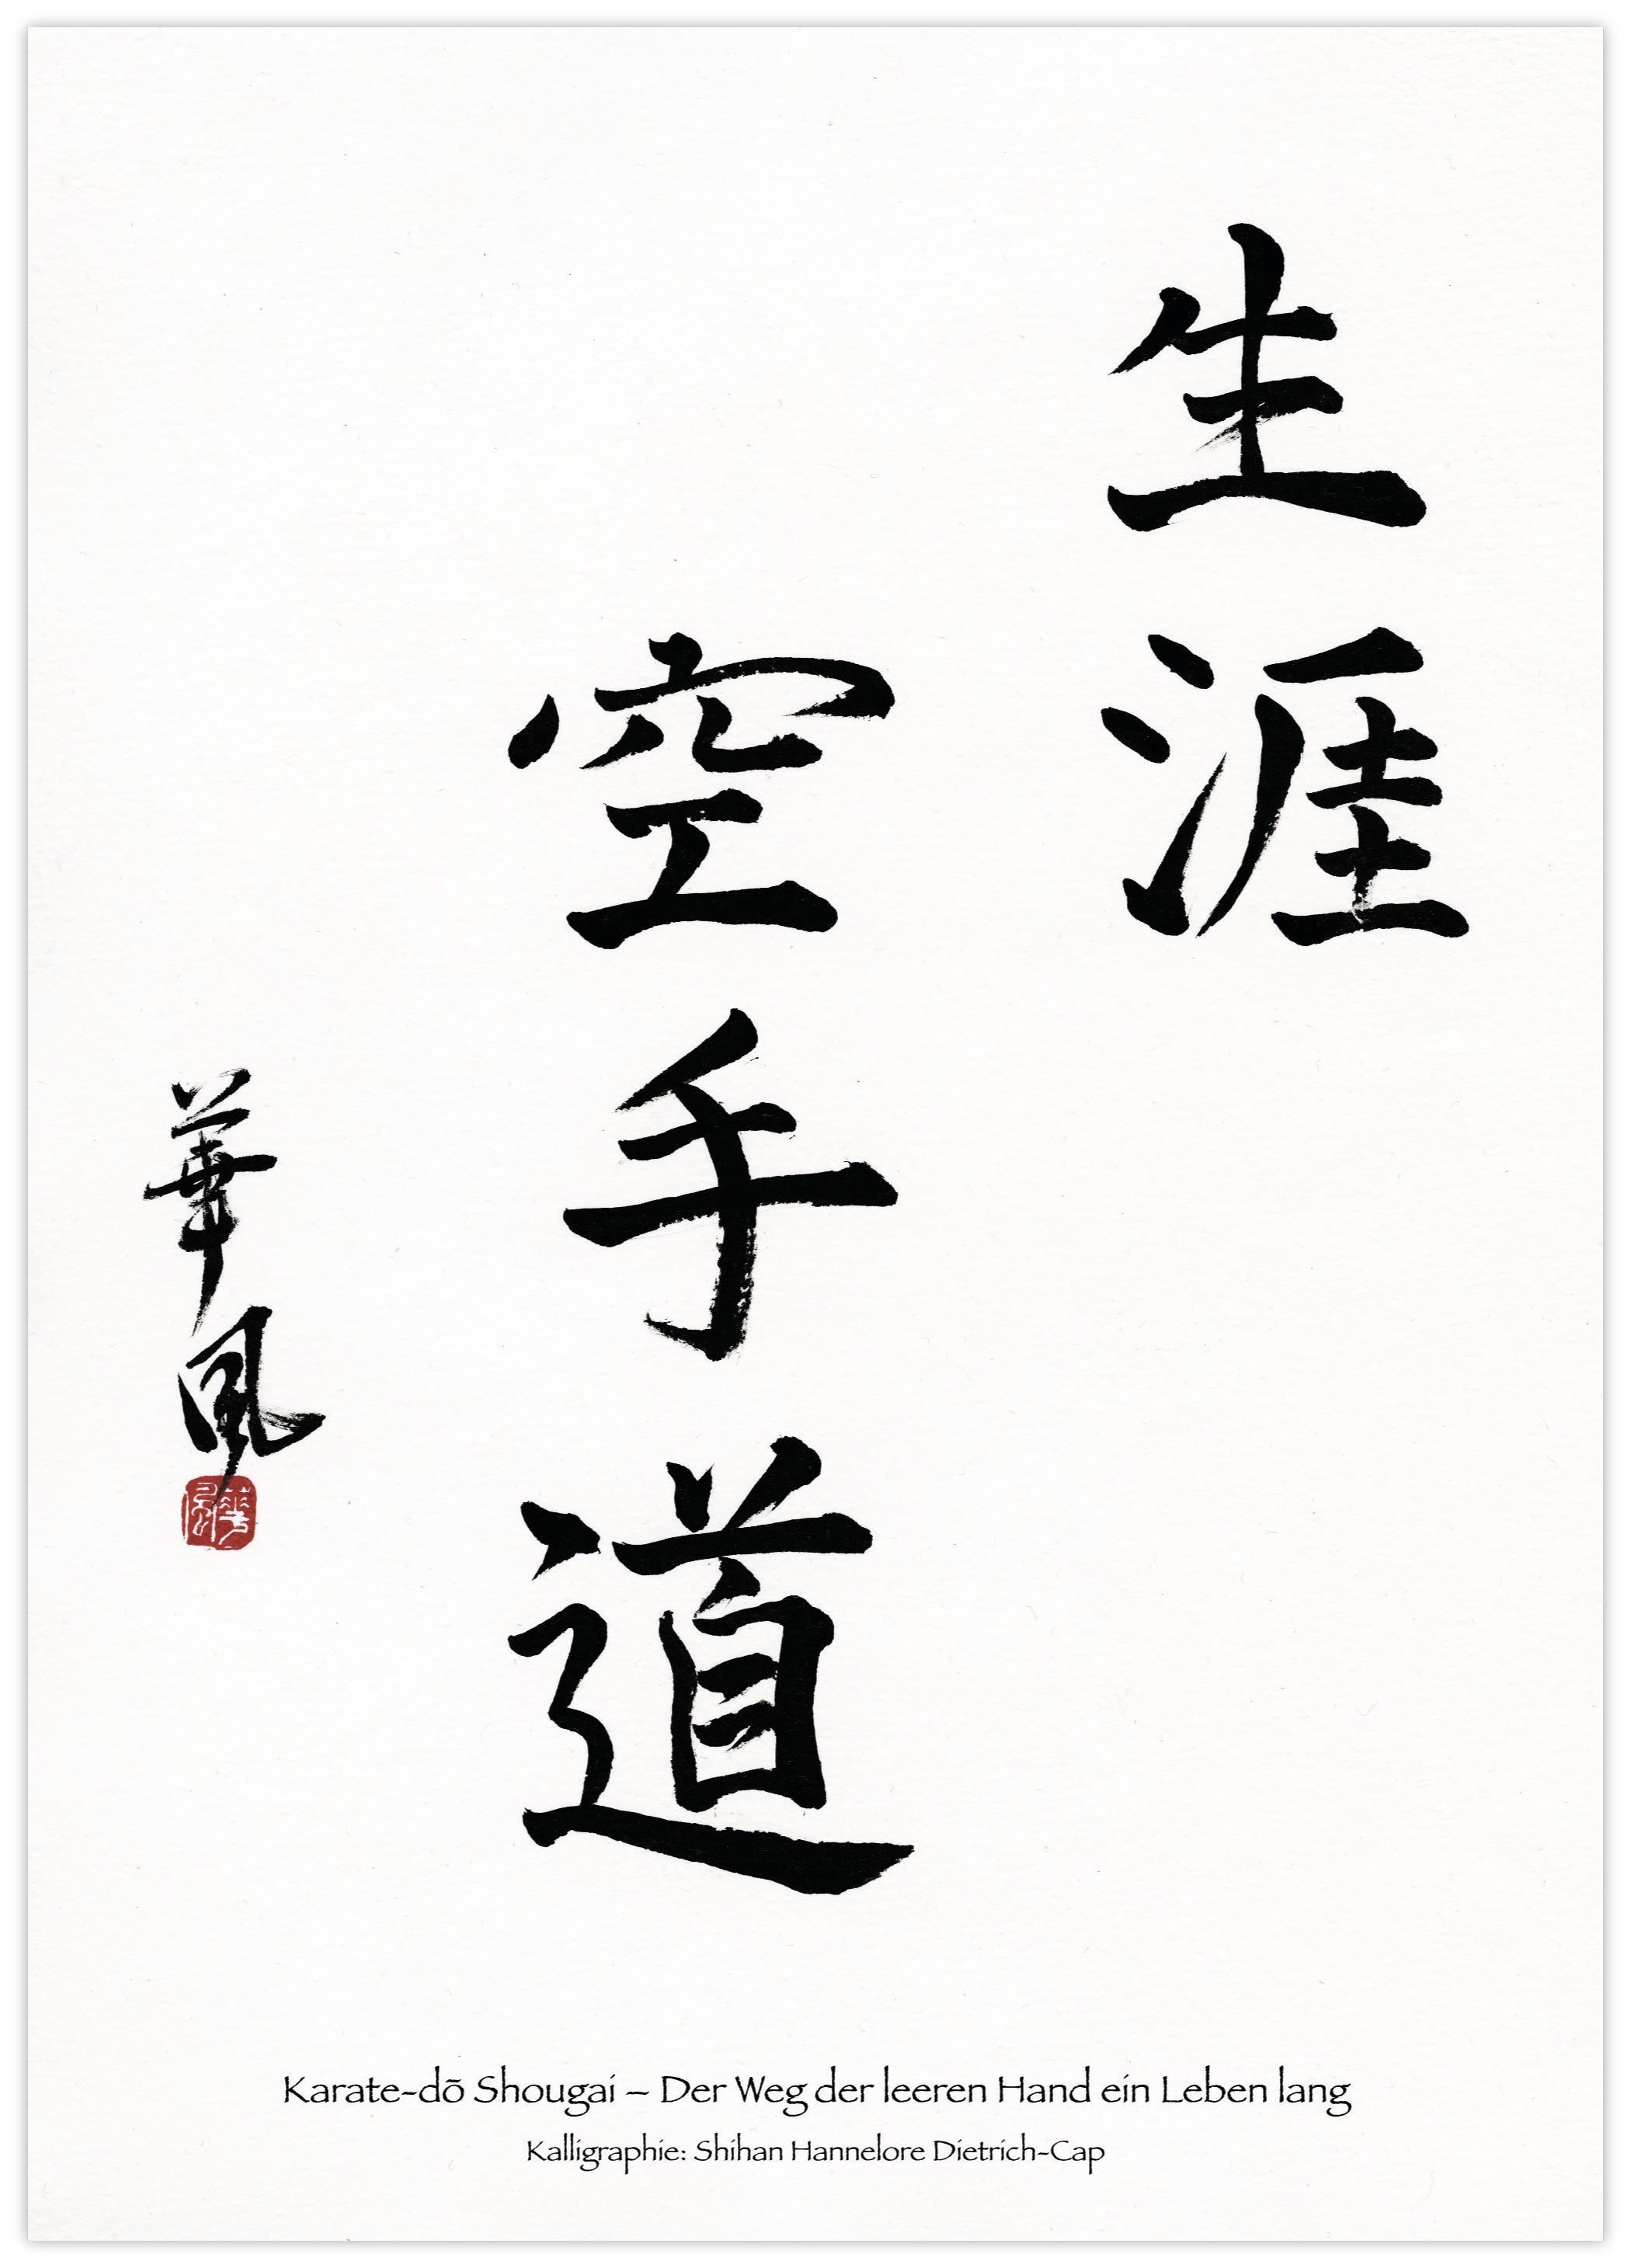 生涯
空手道
華風
Karate-dō Shougai – Der Weg der leeren Hand ein Leben lang
Kalligraphie: Shihan Hannelore Dietrich-Cap